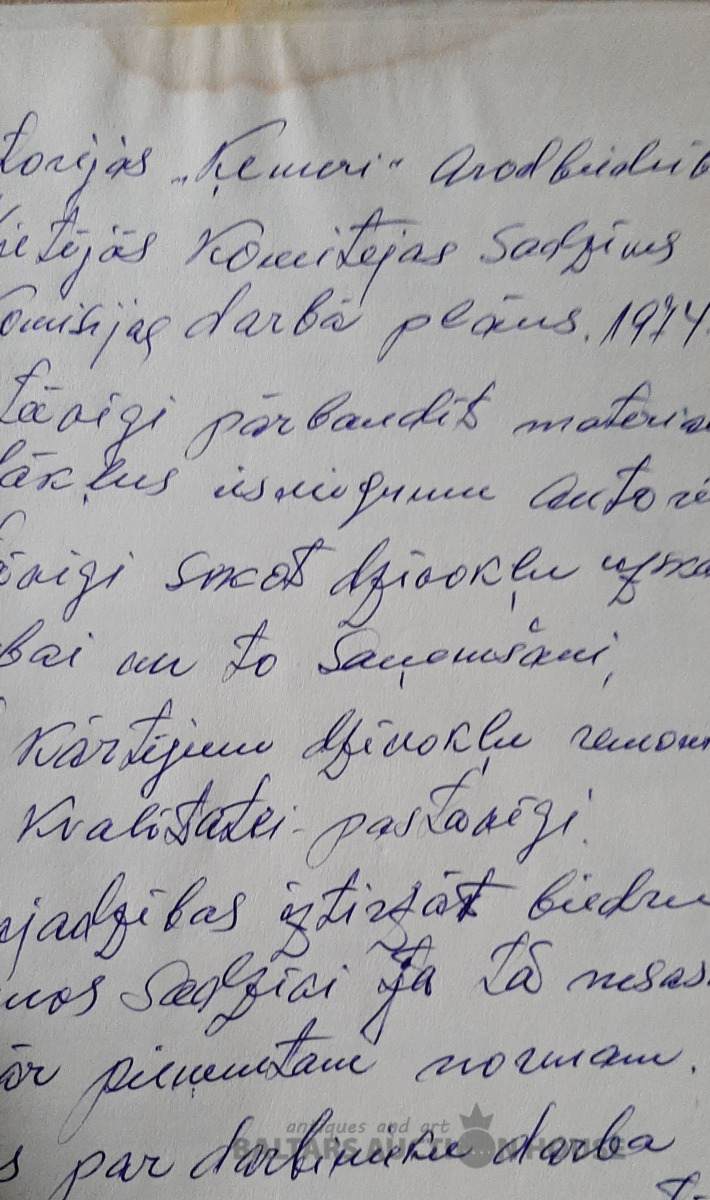 torijās „Ķemeri" Arodbiedrīb
vietējās Komitejas Sadzīves
Komisijas darbā plāns. 1974.
tāvīgi pārbaudīt materia
lākļus
tāvīgi sekot dzīvokļu uzska
bai un to Saņemšani,
Kārtējumu dzīvokļu remon
Kvalitātei pastāvīgi.
ajadzības iztirzāt biedru
Sadzīvi Ja tā nesas
ār pieņemtam normam.
s par darbinieku darba
antiques and art
BALTARS AUCTION HOUSE